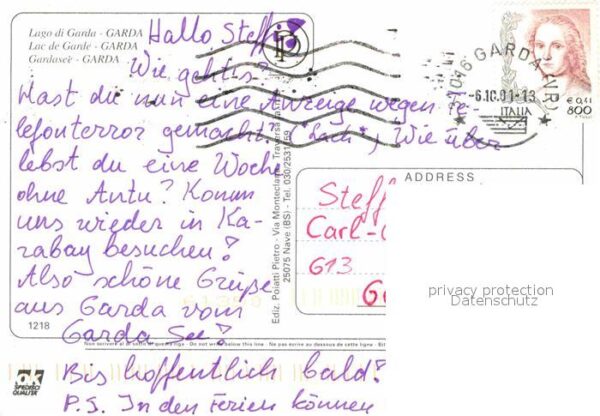 Lago di Garda - GARDA
Lac de Garde - GARDA
Gardasee - GARDA
Hallo Steffi!
Wie geht's?
Hast du nun eine Anzeige wegen Te-
lefonterror gemacht? (*Lach*) Wie über
lebst du eine Woche
ohne Antu? Komm
uns wieder in Ka-
rabay besuchen!
Also schöne Grüße
aus Garda vom
Garda See!
Bis hoffentlich bald!
P.S. In den Ferien können
1218
OK
SPEDISCI
QUALITA'
Ediz. Poiatti Pietro - Via Monteclana Traversa
25075 Nave (BS) - Tel. 030/2531159
Non scrivere al di sotto di questa linea - Do not write below this line - Ne pas écrire au dessous de cette ligne
37016 GARDA (VR)
-6.10.01-13
€ 0,41
800
ITALIA
ADDRESS
Steff
Carl-
613
privacy protection
Datenschutz